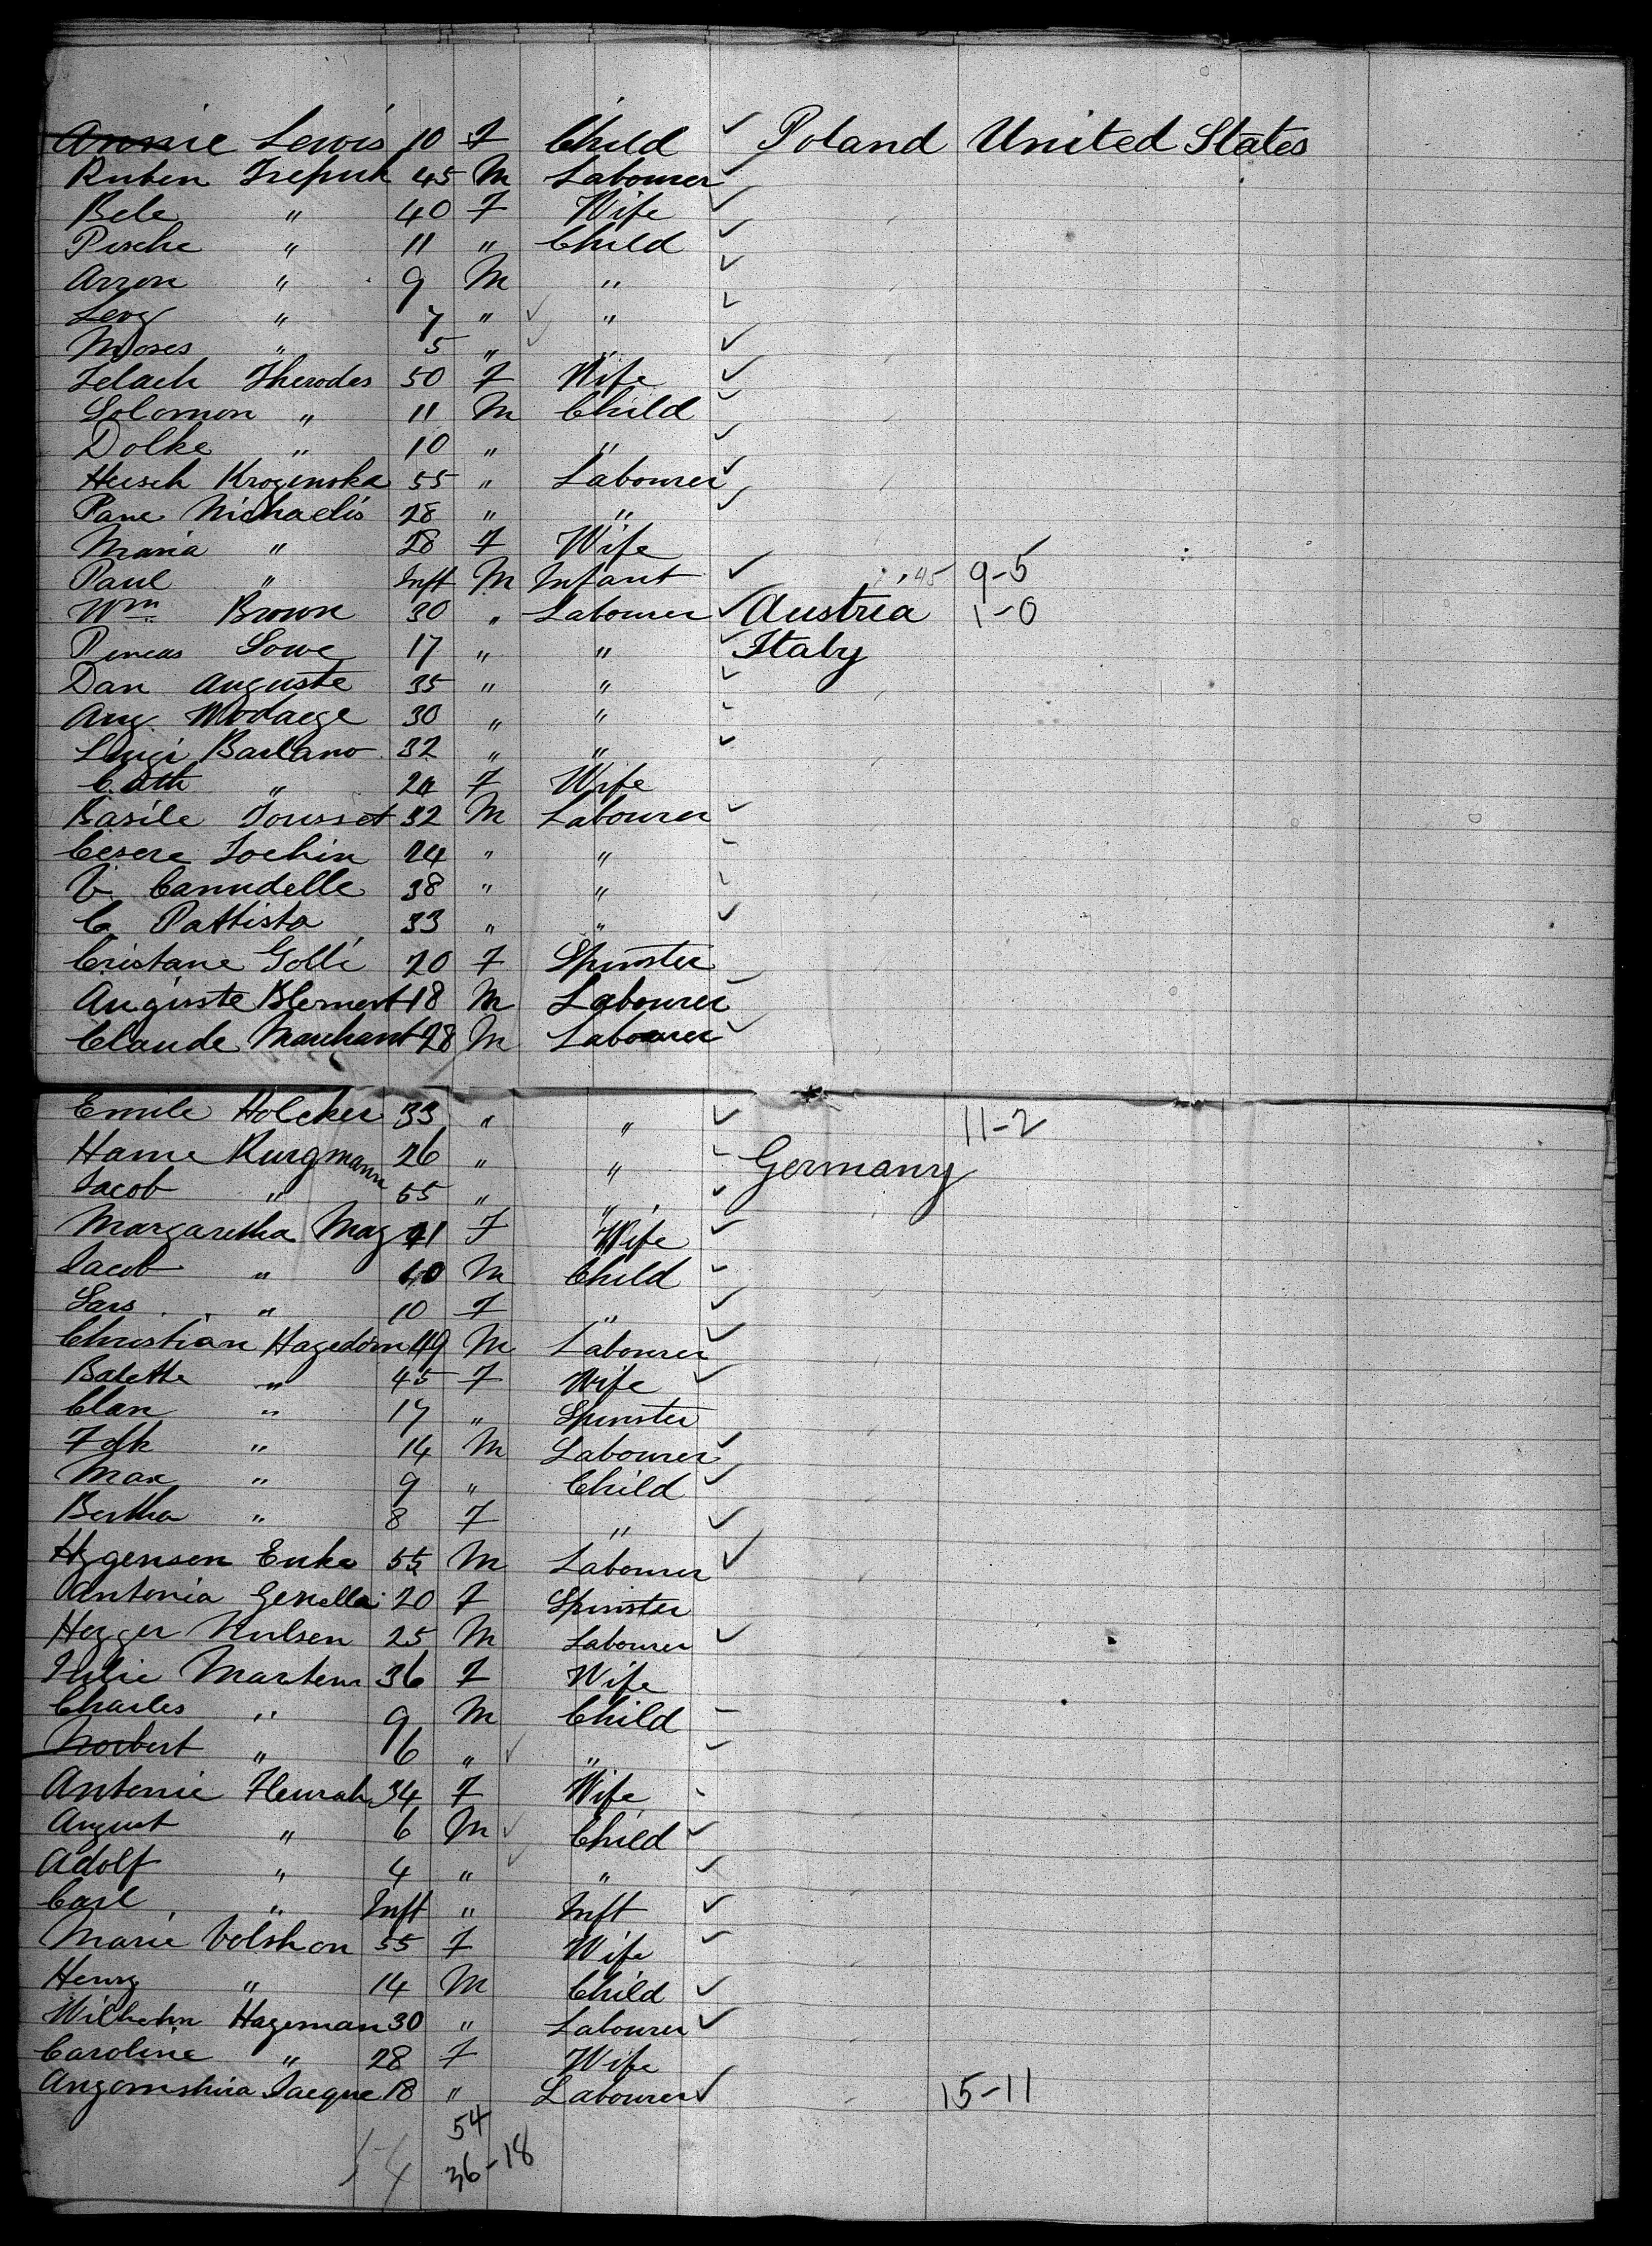 Annie Lewis 10 F Child ✓ Poland United States
Ruben Trepuk 45 M Labourer ✓
Bele " 40 F Wife ✓
Pesche " 11 " Child ✓
Arron " 9 M " ✓
Levy " 7 " ✓ " ✓
Moses " 5 " ✓ " ✓
Zelach Therodes 50 F Wife ✓
Solomon " 11 M Child ✓
Dolke " 10 " " ✓
Hersch Krogenska 55 " Labourer ✓
Pane Michaelis 28 " " ✓
Maria " 28 F Wife
Paul " Inft M Infant ✓ 45 9-5
Wm Brown 30 " Labourer ✓ Austria 1-0
Pineas Lowe 17 " " ✓ Italy
Dan Auguste 35 " " ✓
Aug Modaege 30 " " ✓
Luigi Barlano 32 " " ✓
Cath " 24 F Wife
Basile Dousset 32 M Labourer ✓
Cesere Jochin 24 " " ✓
V. Canudelle 38 " " ✓
C. Pattista 33 " " ✓
Cristane Golli 20 F Spinster
Auguste Blemert 18 M Labourer
Claude Marchant 28 M Labourer ✓
Emile Holcker 33 " " ✓ 11-2
Hame Rurgmann 26 " " ✓ Germany
Jacob " 55 " " ✓
Margaretha May 41 F Wife ✓
Jacob " 10 M Child ✓
Lars " 10 F " ✓
Christian Hagedorn 49 M Labourer ✓
Balette " 45 F Wife ✓
Clan " 17 " Spinster
Folk " 14 M Labourer ✓
Max " 9 " Child ✓
Bertha " 8 F " ✓
Hgensen Enke 55 M Labourer ✓
Antonia Genella 20 F Spinster
Hegger Nulsen 25 M Labourer ✓
Julie Martens 36 F Wife
Charles " 9 M Child –
Norbert " 6 " ✓ " ✓
Antonie Fleurah 34 F Wife ✓
August " 6 M ✓ Child ✓
Adolf " 4 " ✓ " ✓
Carl " Inft " Inft ✓
Marie Volshon 55 F Wife ✓
Henry " 14 M Child ✓
Wilhelm Hageman 30 " Labourer ✓
Caroline " 28 F Wife
Angomshira Jacque 18 " Labourer ✓ 15-11
54
54 36-18